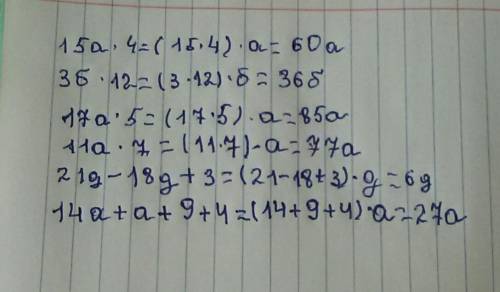 15a · 4 = (15 · 4) · a = 60a
3б · 12 = (3 · 12) · б = 36б
17a · 5 = (17 · 5) · a = 85a
11a · 7 = (11 · 7) · a = 77a
21g - 18g + 3 = (21 - 18 + 3) · g = 6g
14a + a + 9 + 4 = (14 + 9 + 4) · a = 27a